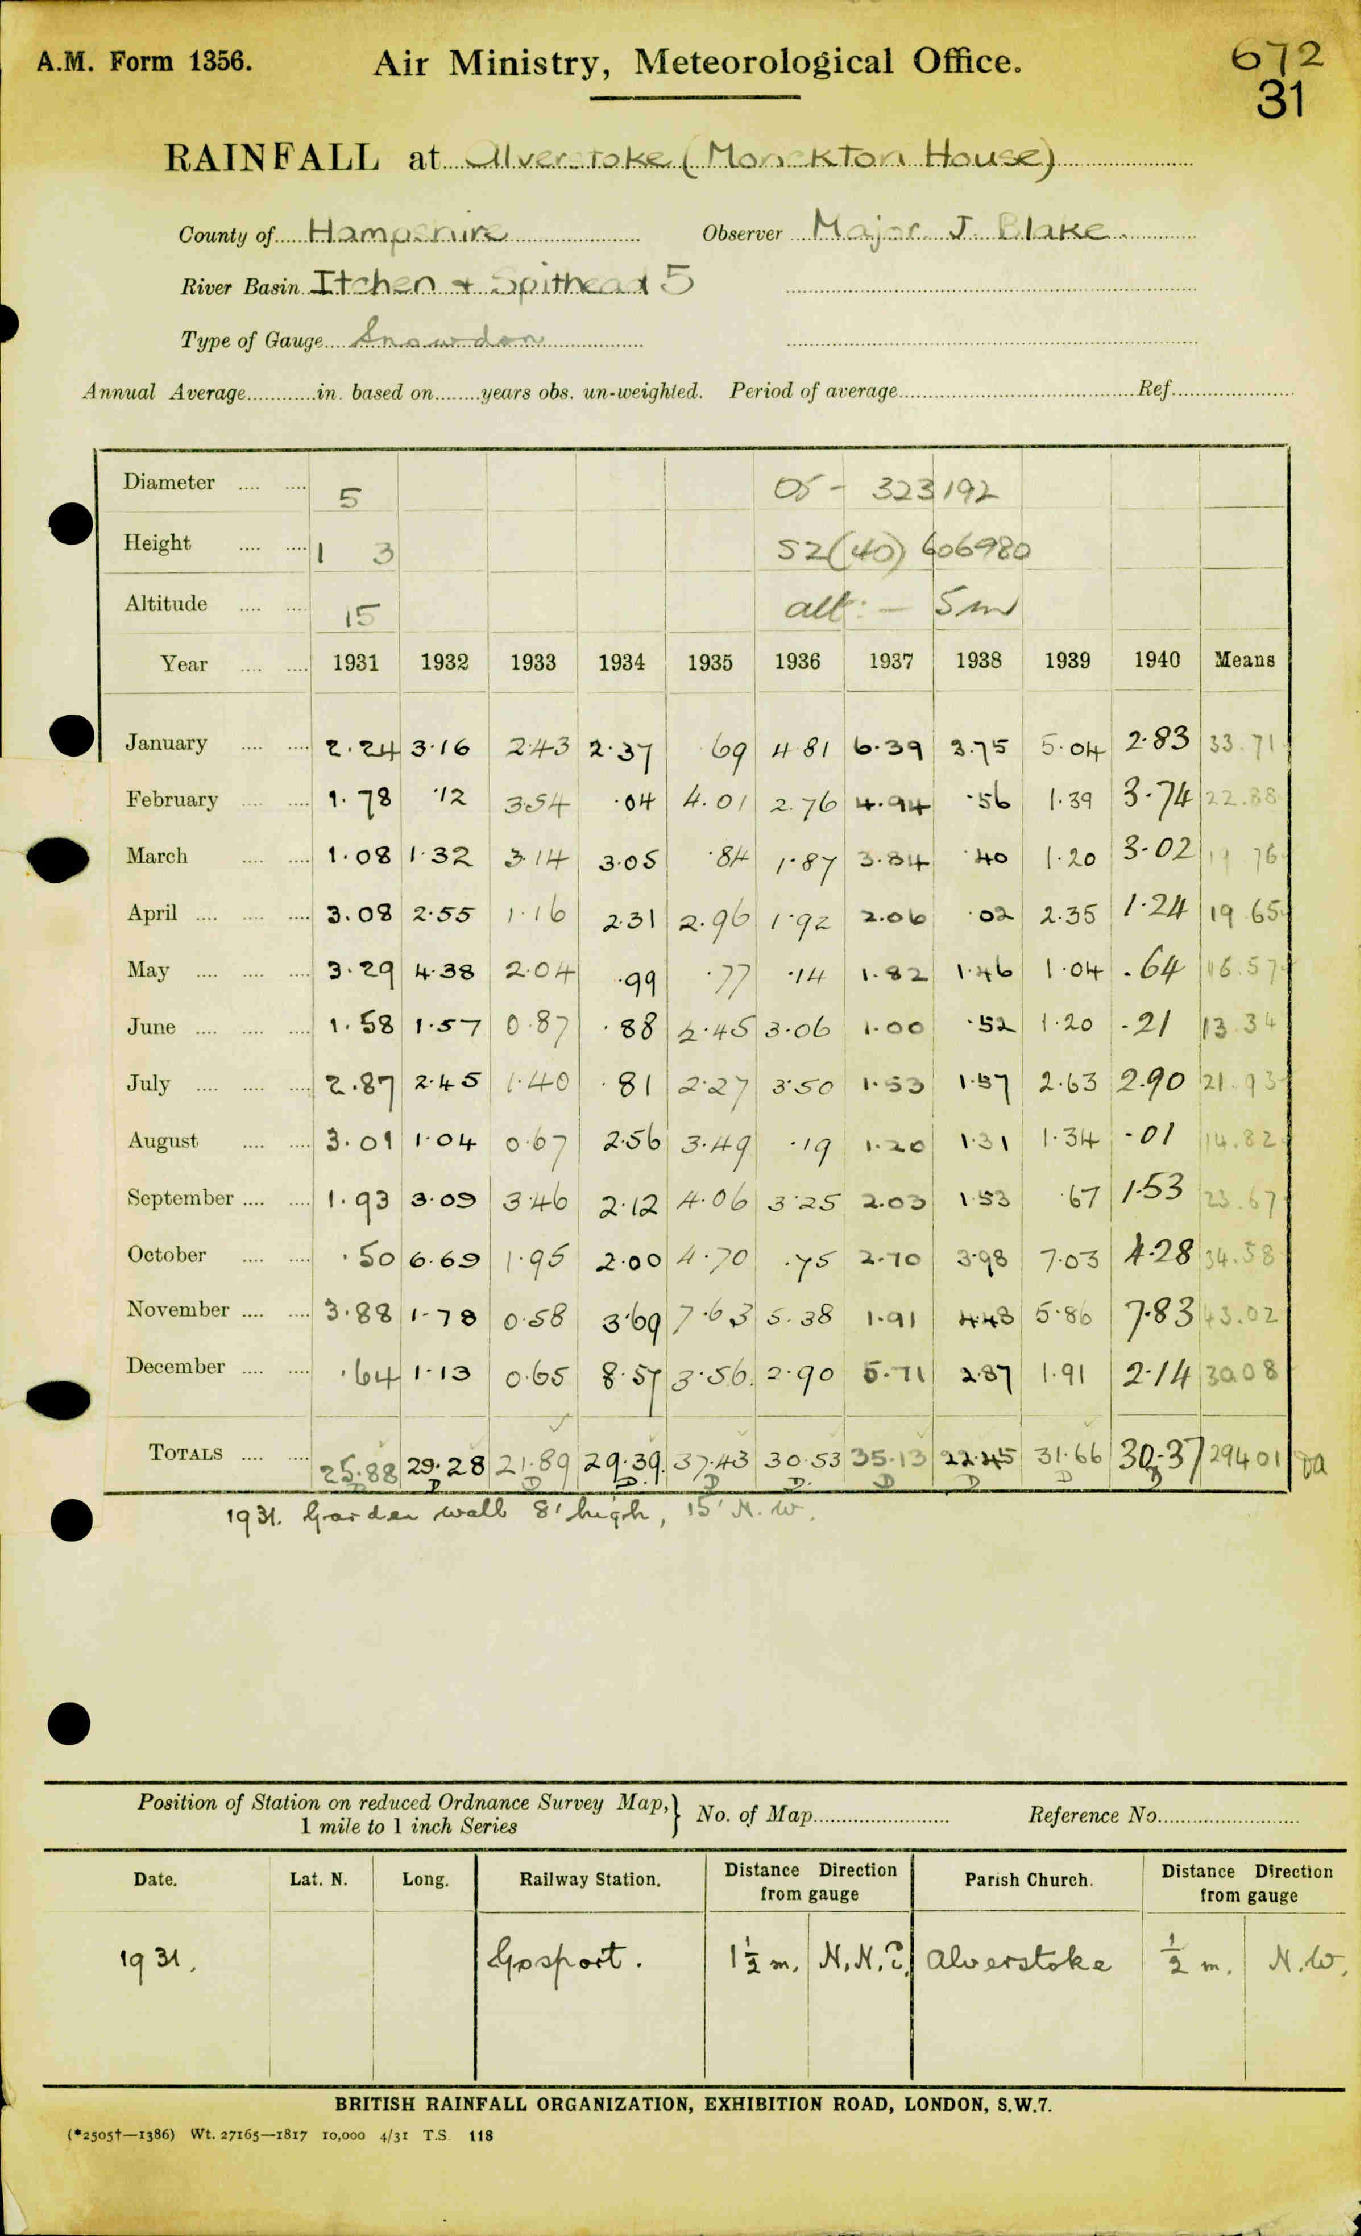 A.M. Form 1356. Air Ministry, Meteorological Office. 672
31
RAINFALL at Alverstoke (Monckton House)
County of Hampshire Observer Major J. Blake.
River Basin Itchen + Spithead 5
Type of Gauge Snowdon
Annual Average in. based on years obs. un-weighted. Period of average Ref.
Diameter 5 OS - 323192
Height 1 3 SZ(40) 606980
Altitude 15 alt: - 5m
Year 1931 1932 1933 1934 1935 1936 1937 1938 1939 1940 Means
January 2.24 3.16 2.43 2.37 .69 4.81 6.39 3.75 5.04 2.83 33.71
February 1.78 .12 3.54 .04 4.01 2.76 4.94 .56 1.39 3.74 22.88
March 1.08 1.32 3.14 3.05 .84 1.87 3.84 .40 1.20 3.02 19 76
April 3.08 2.55 1.16 2.31 2.96 1.92 2.06 .02 2.35 1.24 19.65
May 3.29 4.38 2.04 .99 .77 .14 1.82 1.46 1.04 .64 16.57
June 1.58 1.57 0.87 .88 2.45 3.06 1.00 .52 1.20 .21 13.34
July 2.87 2.45 1.40 .81 2.27 3.50 1.53 1.57 2.63 2.90 21.93
August 3.01 1.04 0.67 2.56 3.49 .19 1.20 1.31 1.34 .01 14.82
September 1.93 3.09 3.46 2.12 4.06 3.25 2.03 1.53 .67 1.53 23.67
October .50 6.69 1.95 2.00 4.70 .75 2.70 3.98 7.03 4.28 34.58
November 3.88 1.78 0.58 3.69 7.63 5.38 1.91 4.48 5.86 7.83 43.02
December .64 1.13 0.65 8.57 3.56 2.90 5.71 2.87 1.91 2.14 30.08
TOTALS 25.88 29.28 21.89 29.39 37.43 30.53 35.13 22.45 31.66 30.37 294.01
D D D D D D D D D D
1931. Garden wall 8' high, 15' N.W.
Position of Station on reduced Ordnance Survey Map, } No. of Map Reference No.
1 mile to 1 inch Series
Date. Lat. N. Long. Railway Station. Distance Direction from gauge Parish Church. Distance Direction from gauge
1931. Gosport. 1½ m. N.N.E. Alverstoke ½ m. N.W.
BRITISH RAINFALL ORGANIZATION, EXHIBITION ROAD, LONDON, S.W.7.
(*2505†—1386) Wt. 27165—1817 10,000 4/31 T.S. 118